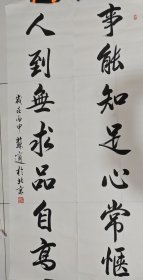 事能知足心常惬
人到無求品自高
歲在丙申 蘇適於北京